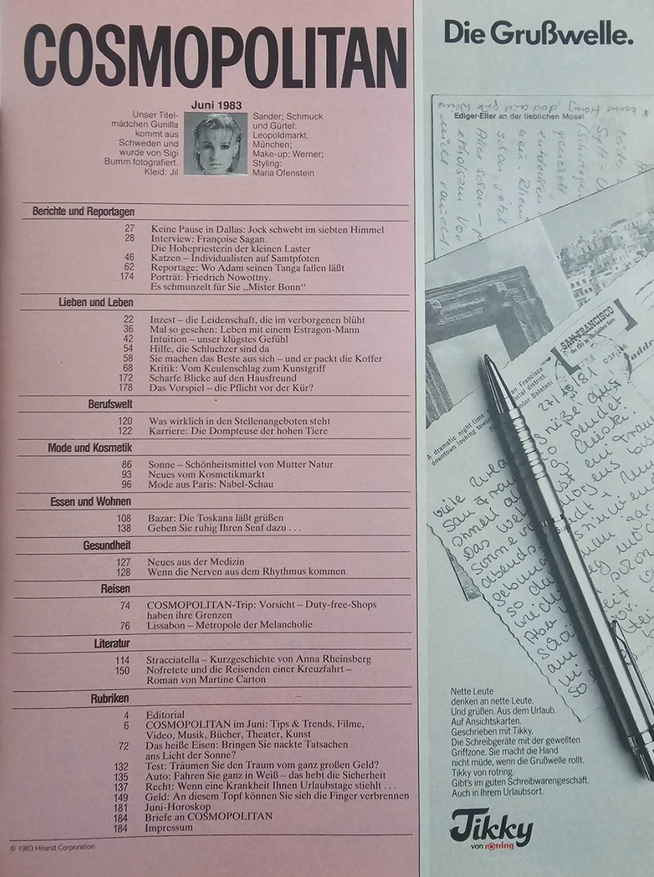 COSMOPOLITAN
Juni 1983
Unser Titel-
mädchen Gunilla
kommt aus
Schweden und
wurde von Sigi
Bumm fotografiert.
Kleid: Jil
Sander; Schmuck
und Gürtel:
Leopoldmarkt,
München;
Make-up: Werner;
Styling:
Maria Ofenstein
Berichte und Reportagen
27 Keine Pause in Dallas: Jock schwebt im siebten Himmel
28 Interview: Françoise Sagan.
Die Hohepriesterin der kleinen Laster
46 Katzen – Individualisten auf Samtpfoten
62 Reportage: Wo Adam seinen Tanga fallen läßt
174 Porträt: Friedrich Nowottny.
Es schmunzelt für Sie „Mister Bonn“
Lieben und Leben
22 Inzest – die Leidenschaft, die im verborgenen blüht
36 Mal so gesehen: Leben mit einem Estragon-Mann
42 Intuition – unser klügstes Gefühl
54 Hilfe, die Schluchzer sind da
58 Sie machen das Beste aus sich – und er packt die Koffer
68 Kritik: Vom Keulenschlag zum Kunstgriff
172 Scharfe Blicke auf den Hausfreund
178 Das Vorspiel – die Pflicht vor der Kür?
Berufswelt
120 Was wirklich in den Stellenangeboten steht
122 Karriere: Die Dompteuse der hohen Tiere
Mode und Kosmetik
86 Sonne – Schönheitsmittel von Mutter Natur
93 Neues vom Kosmetikmarkt
96 Mode aus Paris: Nabel-Schau
Essen und Wohnen
108 Bazar: Die Toskana läßt grüßen
138 Geben Sie ruhig Ihren Senf dazu . . .
Gesundheit
127 Neues aus der Medizin
128 Wenn die Nerven aus dem Rhythmus kommen
Reisen
74 COSMOPOLITAN-Trip: Vorsicht – Duty-free-Shops
haben ihre Grenzen
76 Lissabon – Metropole der Melancholie
Literatur
114 Stracciatella – Kurzgeschichte von Anna Rheinsberg
150 Nofretete und die Reisenden einer Kreuzfahrt –
Roman von Martine Carton
Rubriken
4 Editorial
6 COSMOPOLITAN im Juni: Tips & Trends, Filme,
Video, Musik, Bücher, Theater, Kunst
72 Das heiße Eisen: Bringen Sie nackte Tatsachen
ans Licht der Sonne?
132 Test: Träumen Sie den Traum vom ganz großen Geld?
135 Auto: Fahren Sie ganz in Weiß – das hebt die Sicherheit
137 Recht: Wenn eine Krankheit Ihnen Urlaubstage stiehlt . . .
149 Geld: An diesem Topf können Sie sich die Finger verbrennen
181 Juni-Horoskop
184 Briefe an COSMOPOLITAN
184 Impressum
© 1983 Hearst Corporation
Die Grußwelle.
Ediger-Eller an der lieblichen Mosel
SAN FRANCISCO
A dramatic night-time
downtown looking
27/
/81
Nette Leute
denken an nette Leute.
Und grüßen. Aus dem Urlaub.
Auf Ansichtskarten.
Geschrieben mit Tikky.
Die Schreibgeräte mit der gewellten
Griffzone. Sie macht die Hand
nicht müde, wenn die Grußwelle rollt.
Tikky von rotring.
Gibt's im guten Schreibwarengeschäft.
Auch in Ihrem Urlaubsort.
Tikky
von rotring